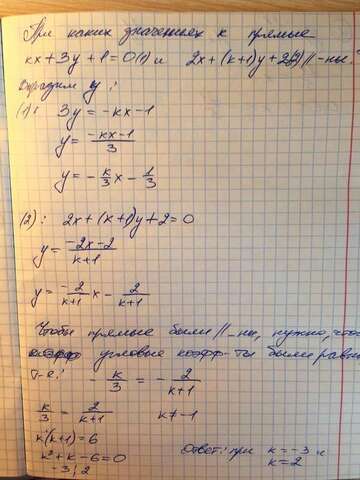 При каких значениях к прямые
кх + 3у + 1 = 0 (1) и 2х + (к+1)у + 2 (2) //-ны.
Выразим у:
(1): 3у = -кх - 1
у = \frac{-кх-1}{3}
у = -\frac{к}{3}х - \frac{1}{3}
(2): 2х + (к+1)у + 2 = 0
у = \frac{-2х-2}{к+1}
у = -\frac{2}{к+1}х - \frac{2}{к+1}
Чтобы прямые были //-ны, нужно, чтобы
угловые коэфф-ты были равны
т.е: -\frac{к}{3} = -\frac{2}{к+1}
\frac{к}{3} = \frac{2}{к+1} к ≠ -1
к(к+1) = 6
к² + к - 6 = 0
-3; 2
Ответ: при к = -3 и
к = 2